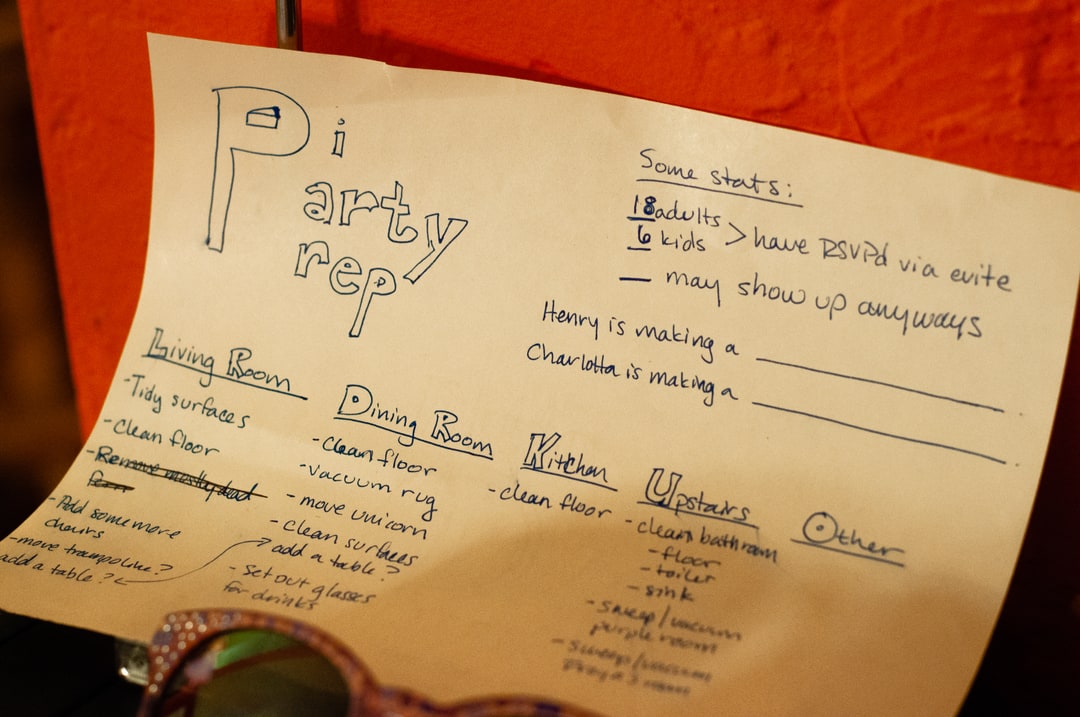 Pi
arty
rep
Some stats:
18 adults
6 kids > have RSVP'd via evite
__ may show up anyways
Henry is making a ________
Charlotta is making a ________
Living Room
-Tidy surfaces
-clean floor
-Remove mostly dead
fern
-Add some more
chairs
-move trampoline?
add a table?
Dining Room
-clean floor
-vacuum rug
-move unicorn
-clean surfaces
add a table?
-set out glasses
for drinks
Kitchen
-clean floor
Upstairs
-clean bathroom
-floor
-toilet
-sink
-sweep/vacuum
purple room
-sweep/vacuum
room
Other